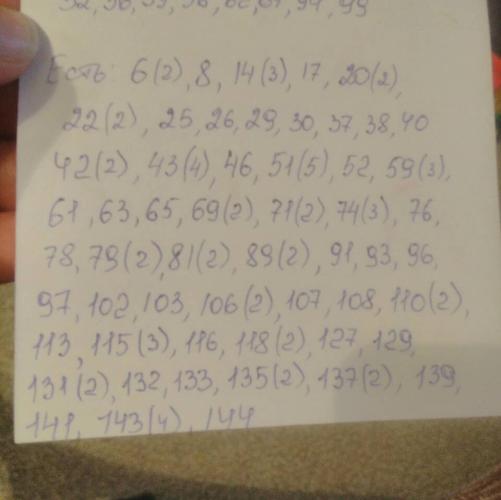 Есть: 6(2), 8, 14(3), 17, 20(2),
22(2), 25, 26, 29, 30, 37, 38, 40
42(2), 43(4), 46, 51(5), 52, 59(3),
61, 63, 65, 69(2), 71(2), 74(3), 76,
78, 79(2), 81(2), 89(2), 91, 93, 96,
97, 102, 103, 106(2), 107, 108, 110(2),
113, 115(3), 116, 118(2), 127, 129,
131(2), 132, 133, 135(2), 137(2), 139,
141, 143(4), 144